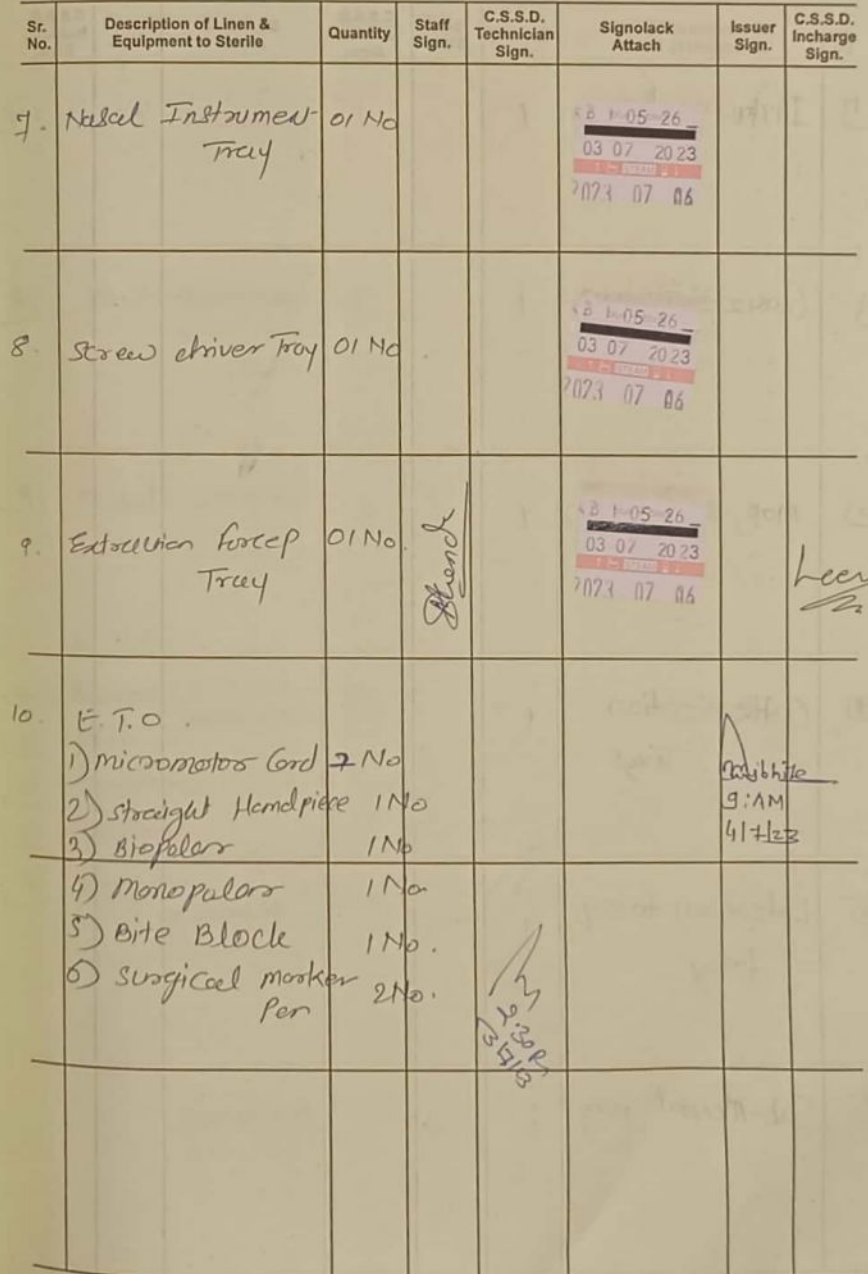 Sr. No. Description of Linen & Equipment to Sterile Quantity Staff Sign. C.S.S.D. Technician Sign. Signolack Attach Issuer Sign. C.S.S.D. Incharge Sign.
7. Nasal Instrument Tray 01 No
B 1-05-26
03 07 2023
STEAM
2023 07 06
8. Screw driver Tray 01 No
B 1-05-26
03 07 2023
STEAM
2023 07 06
9. Extraction forcep Tray 01 No.
B 1-05-26
03 07 2023
STEAM
2023 07 06
10. E.T.O.
1) micromotor Cord 2 No
2) Straight Handpiece 1 No
3) Biopolar 1 No
9:AM
4/7/23
4) Monopolar 1 No
5) Bite Block 1 No.
6) Surgical marker Pen 2 No.
2:30P